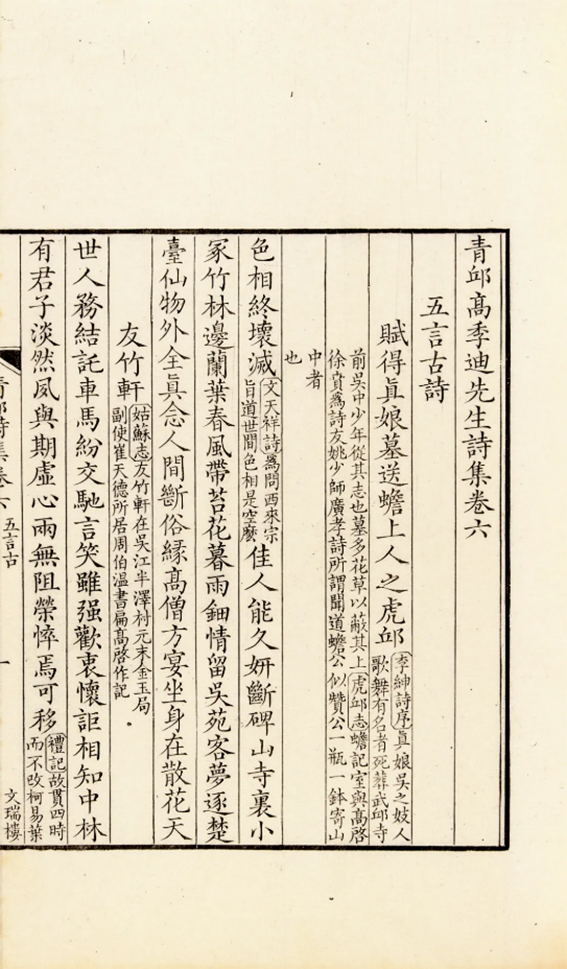 青邱高季迪先生詩集卷六
五言古詩
賦得眞娘墓送蟾上人之虎邱
李紳詩序眞娘吳之妓人
歌舞有名者死葬武邱寺
前吳中少年從其志也墓多花草以蔽其上虎邱志蟾記室與高啓
徐賁爲詩友姚少師廣孝詩所謂聞道蟾公似贊公一瓶一鉢寄山
中者
也
色相終壞滅
文天祥詩爲問西來宗
旨道世間色相是空麽
佳人能久妍斷碑山寺裏小
冢竹林邊蘭葉春風帶苔花暮雨鈿情留吳苑客夢逐楚
臺仙物外全眞念人間斷俗緣高僧方宴坐身在散花天
友竹軒
姑蘇志友竹軒在吳江半澤村元末金玉局
副使崔天德所居周伯溫書扁高啓作記
世人務結託車馬紛交馳言笑雖强歡衷懷詎相知中林
有君子淡然夙與期虛心兩無阻榮悴焉可移
禮記故貫四時
而不改柯易葉
青邱詩集卷六
五言古
一
文瑞樓